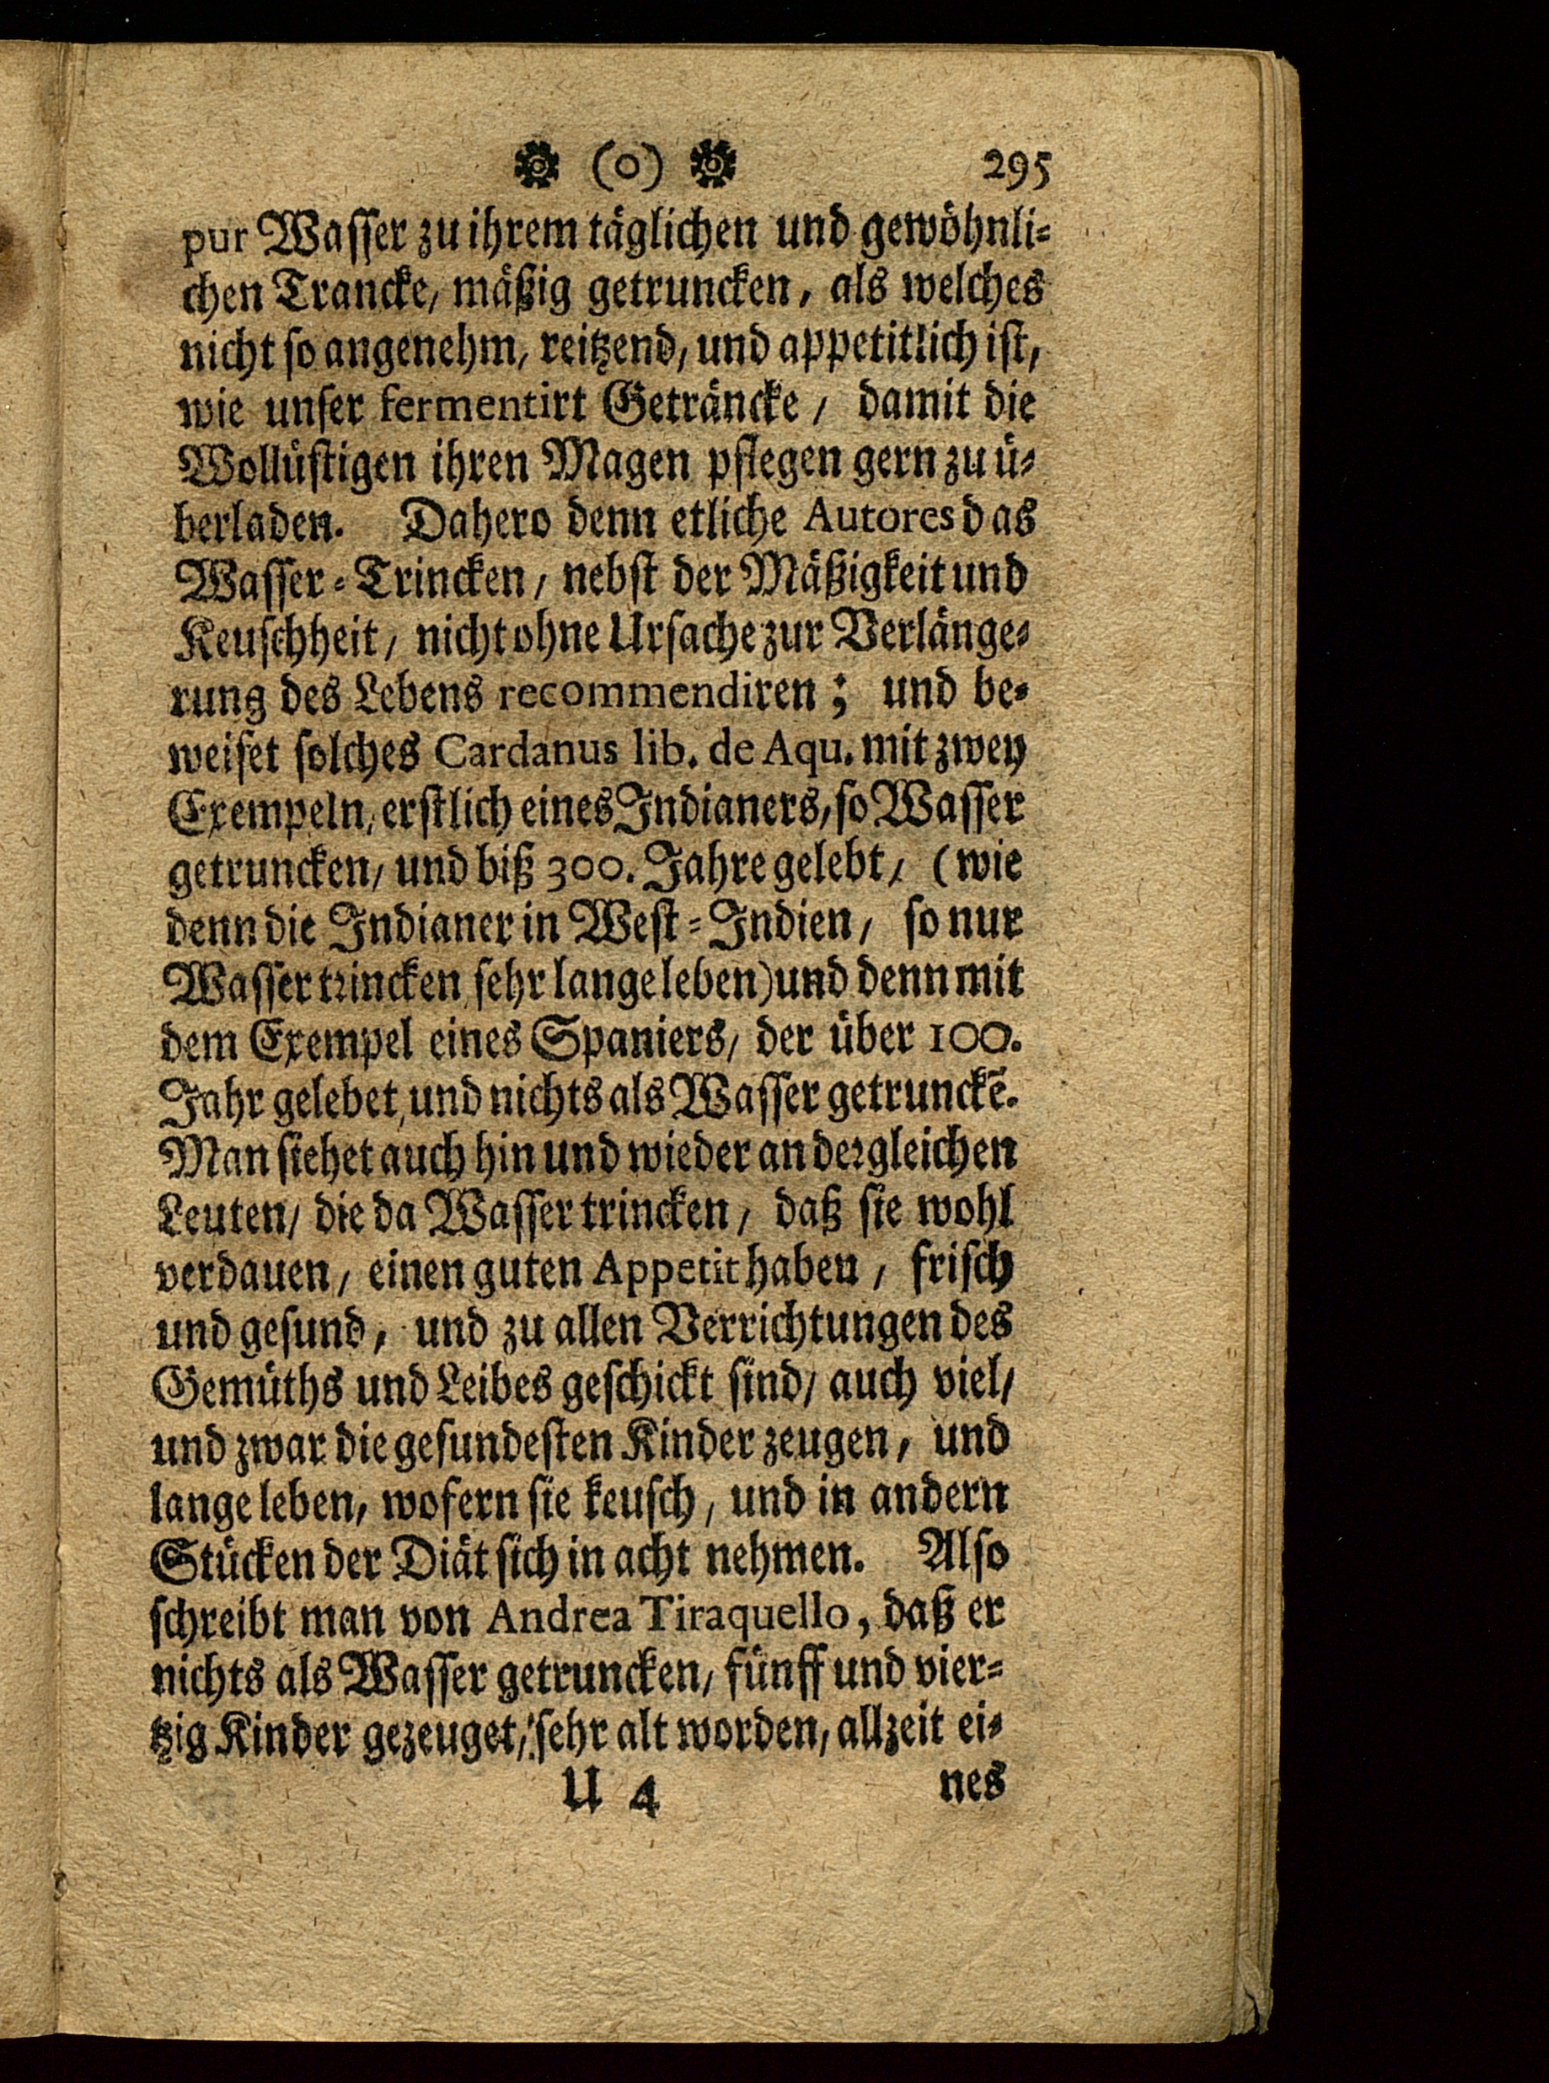 (0) 295
pur Wasser zu ihrem täglichen und gewöhnli=
chen Trancke, mäßig getruncken, als welches
nicht so angenehm, reitzend, und appetitlich ist,
wie unser fermentirt Geträncke / damit die
Wollüstigen ihren Magen pflegen gern zu ü=
berladen. Dahero denn etliche Autores das
Wasser=Trincken / nebst der Mäßigkeit und
Keuschheit / nicht ohne Ursache zur Verlänge=
rung des Lebens recommendiren; und be=
weiset solches Cardanus lib. de Aqu. mit zwey
Exempeln, erstlich eines Indianers, so Wasser
getruncken / und biß 300. Jahre gelebt / (wie
denn die Indianer in West=Indien / so nur
Wasser trincken sehr lange leben) und denn mit
dem Exempel eines Spaniers / der über 100.
Jahr gelebet, und nichts als Wasser getrunckē.
Man siehet auch hin und wieder an dergleichen
Leuten / die da Wasser trincken / daß sie wohl
verdauen / einen guten Appetit haben / frisch
und gesund, und zu allen Verrichtungen des
Gemüths und Leibes geschickt sind / auch viel /
und zwar die gesundesten Kinder zeugen, und
lange leben, wofern sie keusch, und in andern
Stücken der Diät sich in acht nehmen. Also
schreibt man von Andrea Tiraquello, daß er
nichts als Wasser getruncken / fünff und vier=
tzig Kinder gezeuget / sehr alt worden, allzeit ei=
U 4 nes